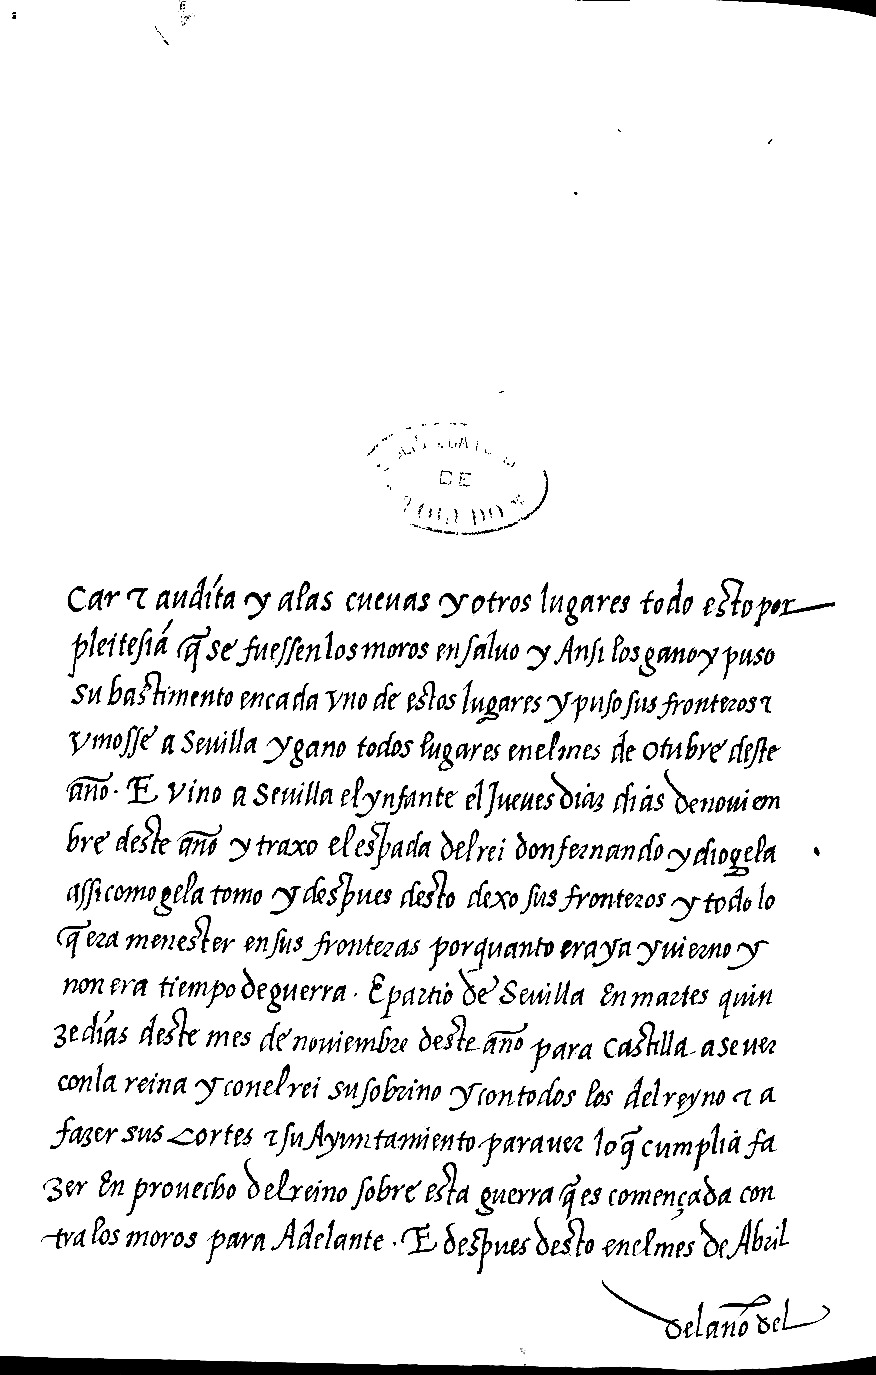 DE
Car τ audíta y alas cueuas y otros lugares todo esto por
pleitesiá q̃ se fuessen los moros en saluo y Ansi los gano y puso
su bastimento en cada vno de estos lugares y puso sus fronteros τ
vmosse a Seuilla y gano todos lugares enel mes de otubre deste
año. E vino a Seuilla el ynfante el Jueues diaz diás de nouiem
bre deste año y traxo el espada del rei don fernando y diogela
assi como gela tomo y despues desto dexo sus fronteros y todo lo
q̃ era menester en sus fronteras por quanto era ya yuierno y
non era tiempo de guerra. E partio de Seuilla En martes quin
ze días deste mes de nouiembre deste año para Castilla a se uer
con la reina y con el rei su sobrino y con todos los del reyno τ a
fazer sus cortes τ su Ayuntamiento para uer lo q̃ cumpliá fa
zer En prouecho del reino sobre esta guerra q̃ es començada con
tra los moros para Adelante. E despues desto enel mes de Abril
del año del